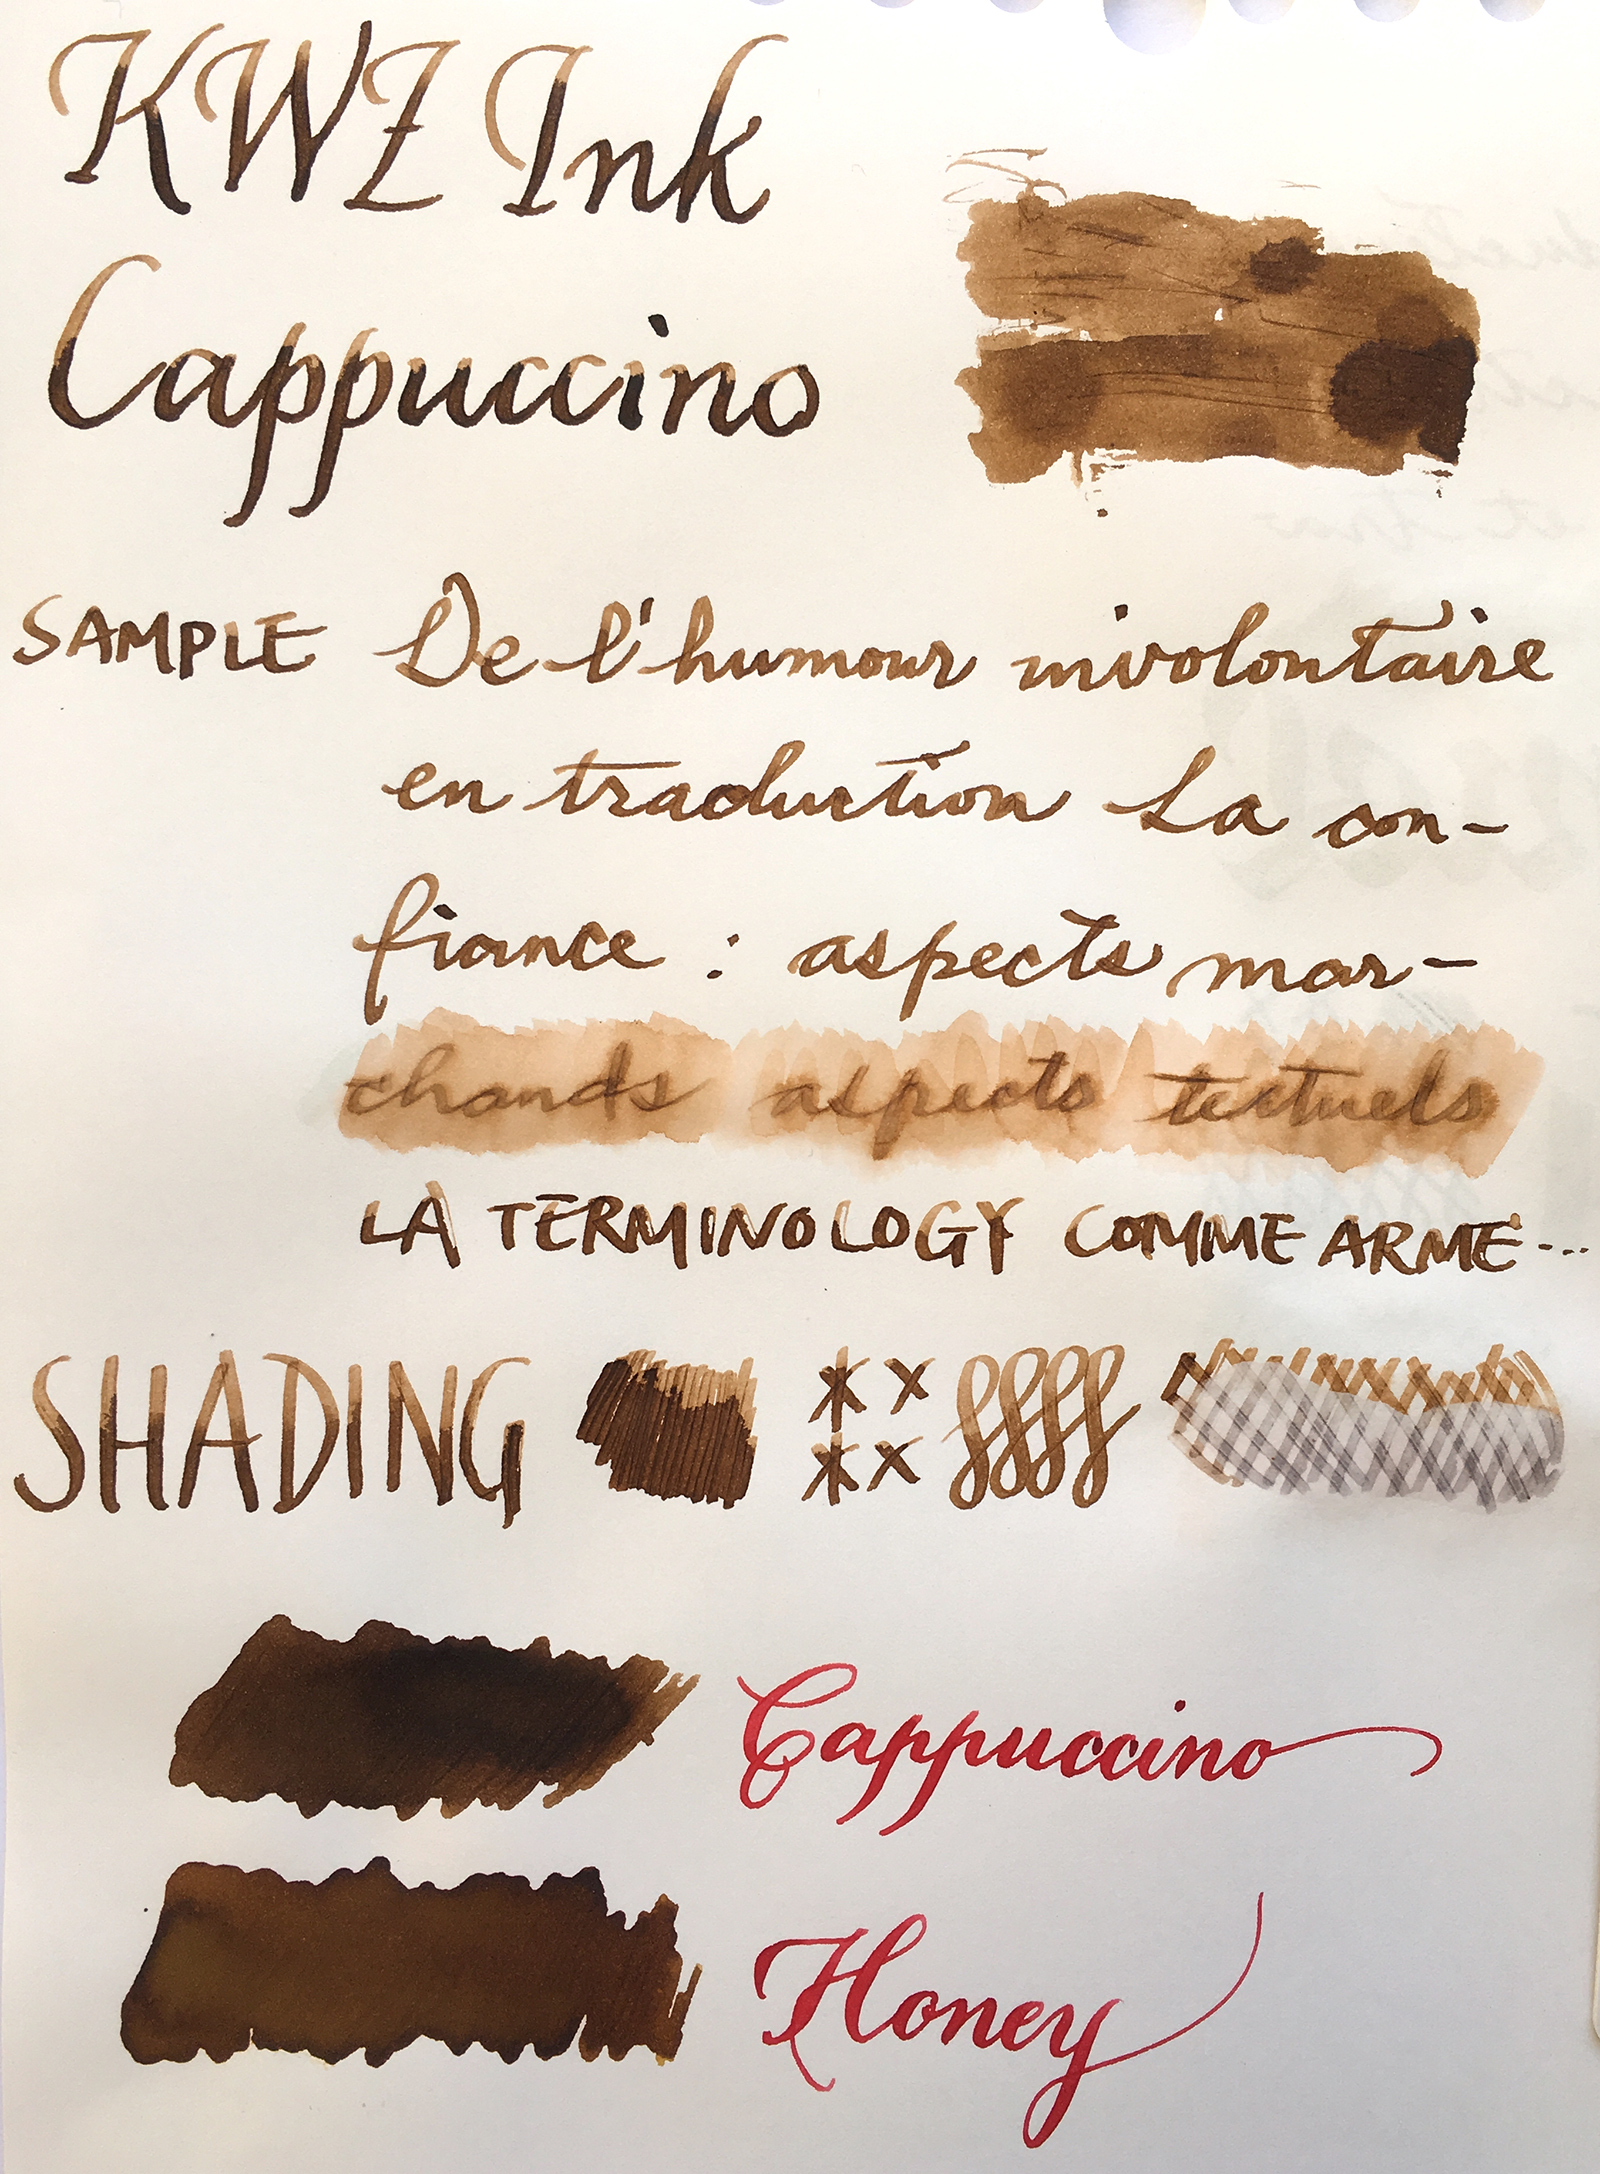 KWZ Ink
Cappuccino
SAMPLE De l'humour involontaire
en traduction La con-
fiance : aspects mar-
chands aspects textuels
LA TERMINOLOGY COMME ARME...
SHADING
Cappuccino
Honey